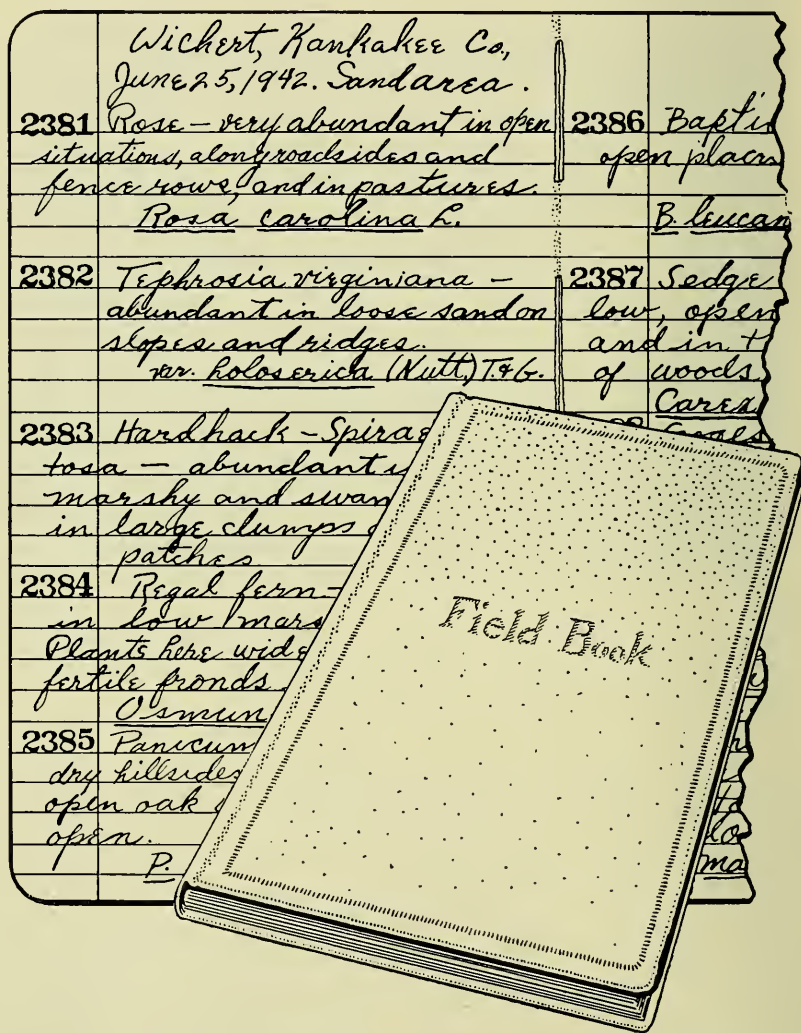 Wichert, Kankakee Co.,
June 25, 1942. Sand area.
2381 Rose — very abundant in open
situations, along roadsides and
fence rows, and in pastures.
Rosa carolina L.
2382 Tephrosia virginiana —
abundant in loose sand on
slopes and ridges.
var. holosericea (Nutt.) T. & G.
2383 Hardhack — Spirae
tosa — abundant i
marshy and swam
in large clumps
patches
2384 Regal fern —
in low mars
Plants here wide
fertile fronds
Osmun
2385 Panicum
dry hillsides
open oak
open.
P.
2386 Baptis
open places
B. leucan
2387 Sedge
low, open
and in t
of woods
Carex
ma
Field Book